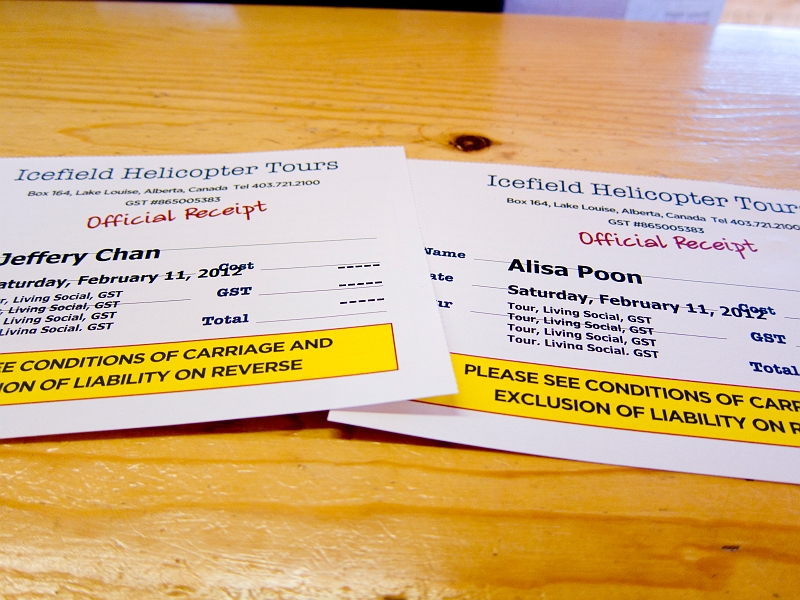 Icefield Helicopter Tours
Box 164, Lake Louise, Alberta, Canada Tel 403.721.2100
GST #865005383
Official Receipt
Jeffery Chan
aturday, February 11, 2012
Cost -----
r, Living Social, GST
, Living Social, GST
, Living Social, GST
, Living Social, GST
GST ----
Total -----
EE CONDITIONS OF CARRIAGE AND
ION OF LIABILITY ON REVERSE
Icefield Helicopter Tour
Box 164, Lake Louise, Alberta, Canada Tel 403.721.210
GST #865005383
Official Receipt
Name Alisa Poon
ate Saturday, February 11, 2012
Cost
ur Tour, Living Social, GST
Tour, Living Social, GST
Tour, Living Social, GST
Tour, Living Social, GST
GST
Total
PLEASE SEE CONDITIONS OF CARR
EXCLUSION OF LIABILITY ON R